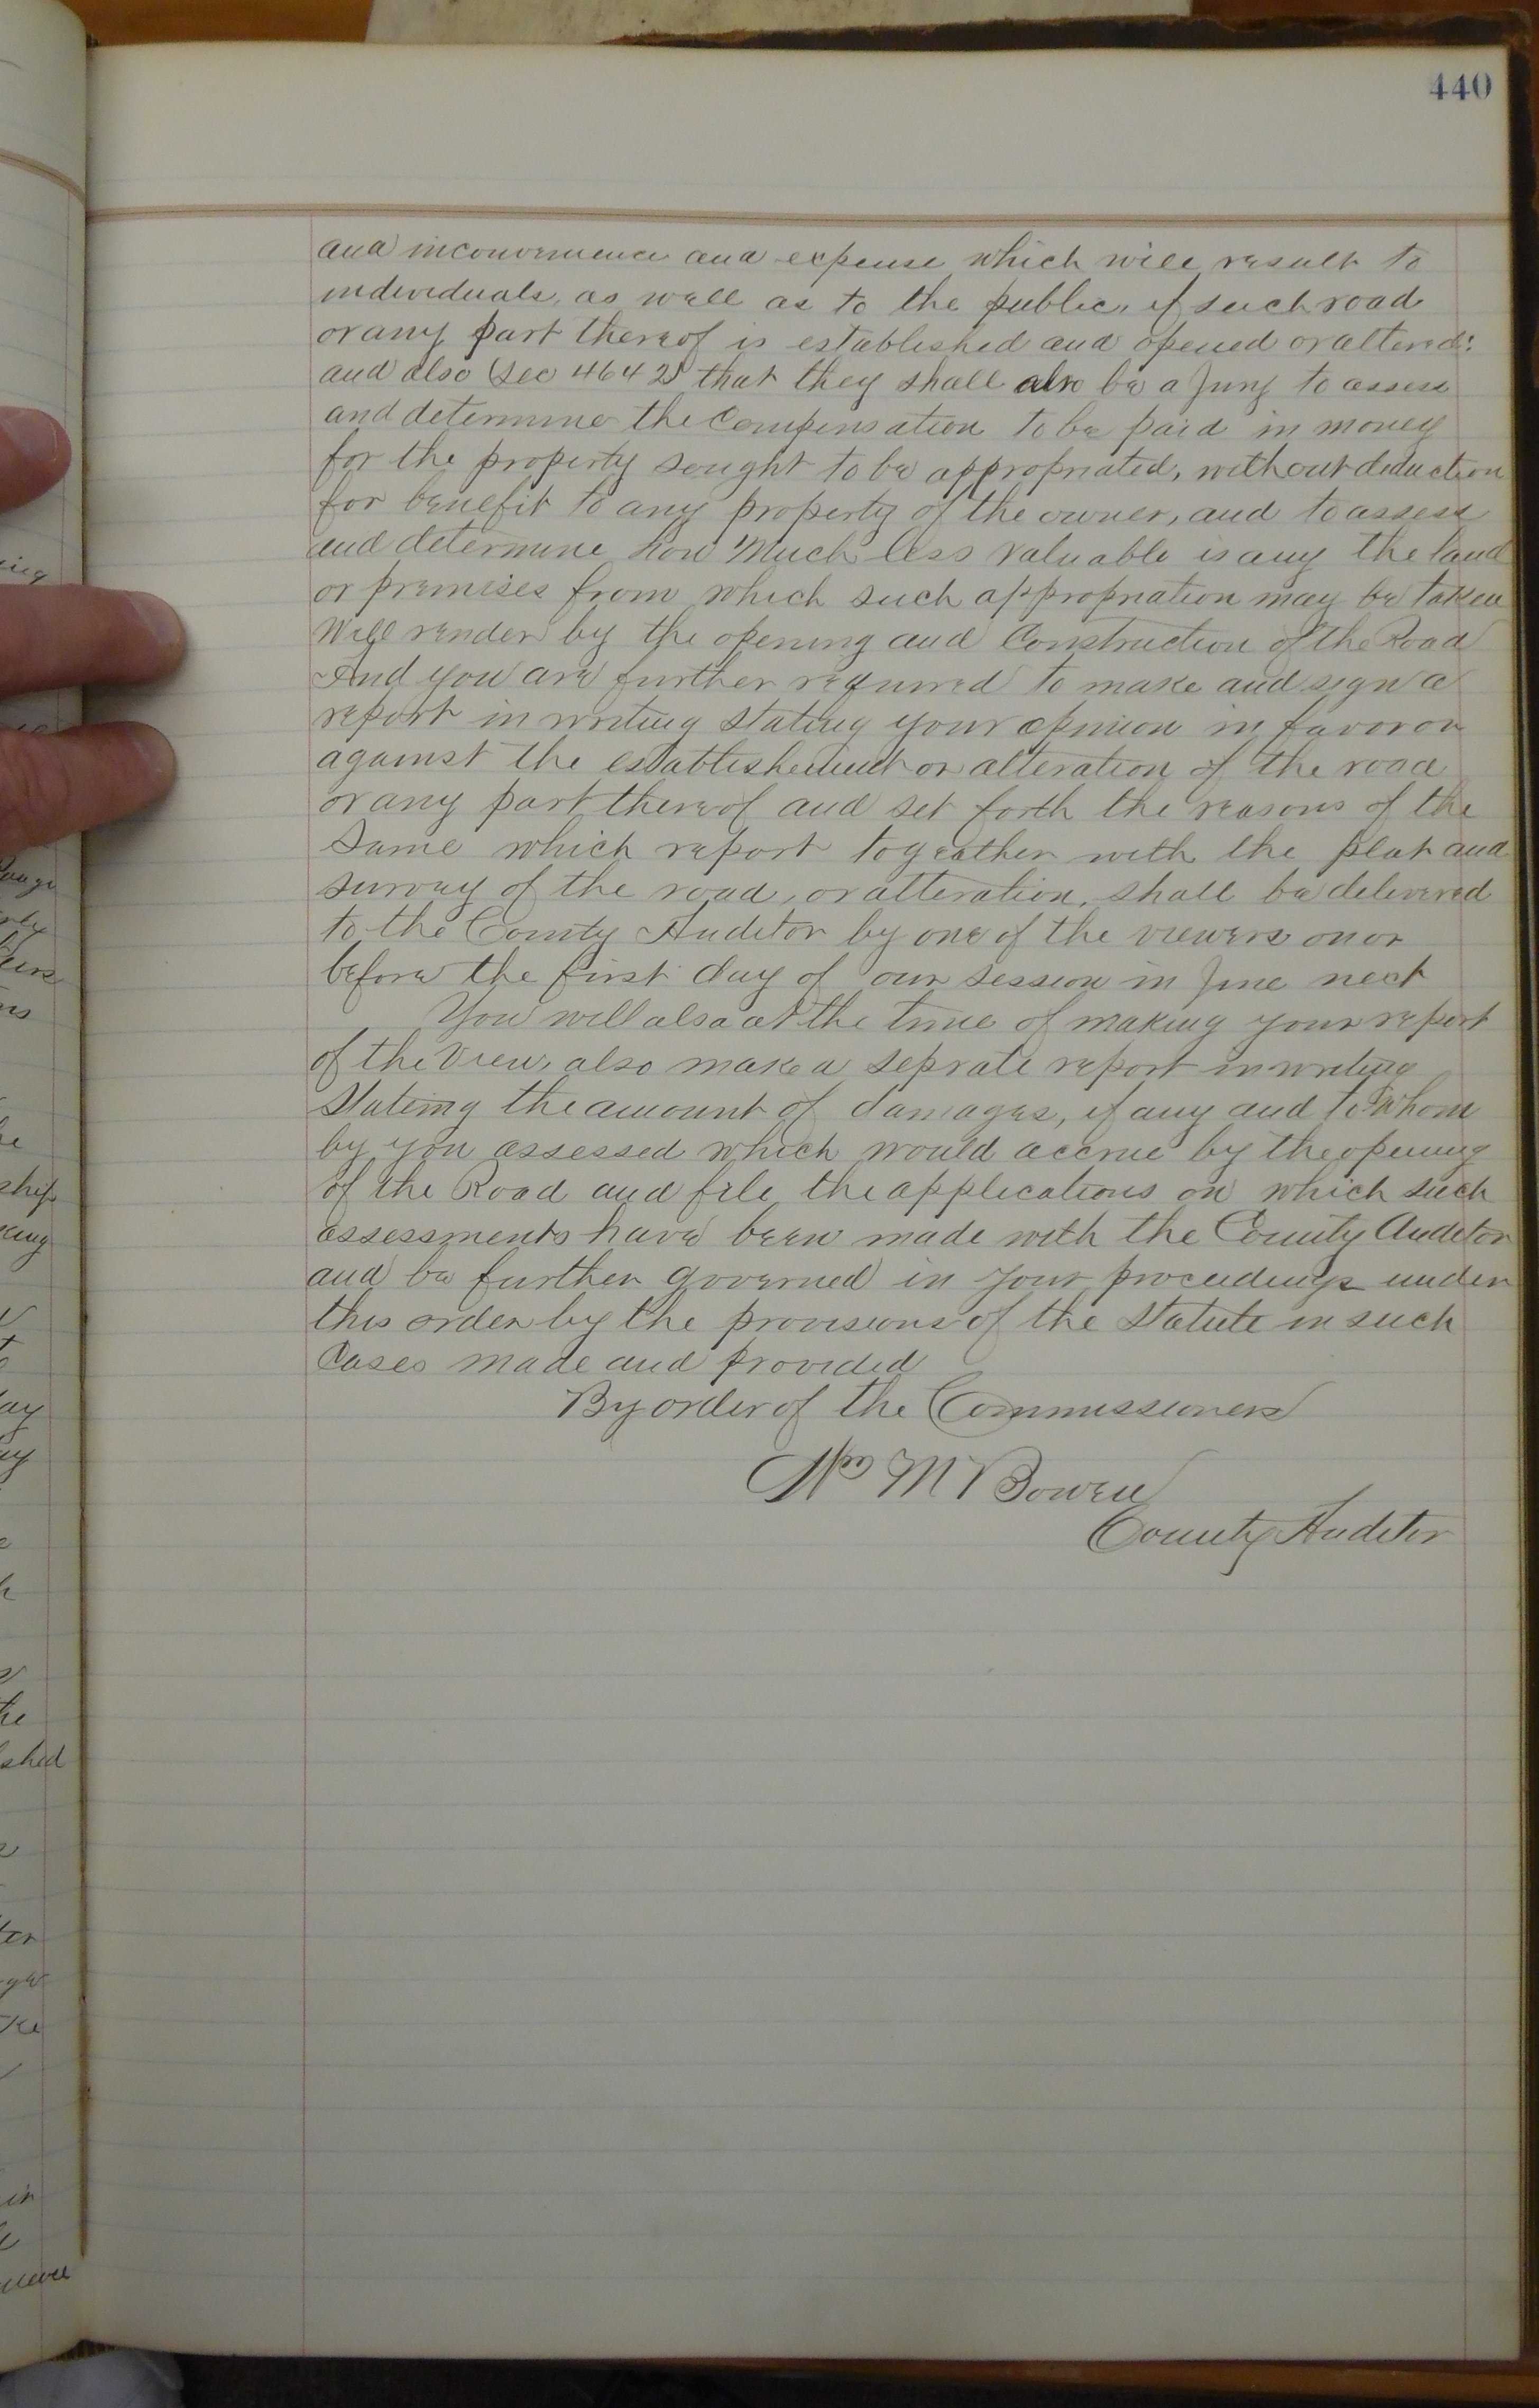 440
and inconvenience and expense which will result to
individuals, as well as to the public, if such road
or any part thereof is established and opened or altered:
and also (Sec 4642) that they shall also be a Jury to assess
and determine the Compensation to be paid in money
for the property sought to be appropriated, without deduction
for benefit to any property of the owner, and to assess
and determine how Much less valuable is any the land
or premises from which such appropriation may be taken
Will render by the opening and Construction of the Road
And you are further required to make and sign a
report in writing stating your opinion in favor or
against the establishment or alteration of the road
or any part thereof and set forth the reasons of the
Same which report togeather with the plat and
survey of the road, or alteration, shall be delivered
to the County Auditor by one of the viewers on or
before the first day of our session in June next
You will also at the time of making your report
of the View, also make a seprate report in writing
Stateing the amount of damages, if any and to Whom
by you assessed which would accrue by the opening
of the Road and file the applications on which such
assessments have been made with the County Auditor
and be further governed in your proceedings under
this order by the provisions of the Statute in such
Cases made and provided
By order of the Commissioners
M Bowen
County Auditor